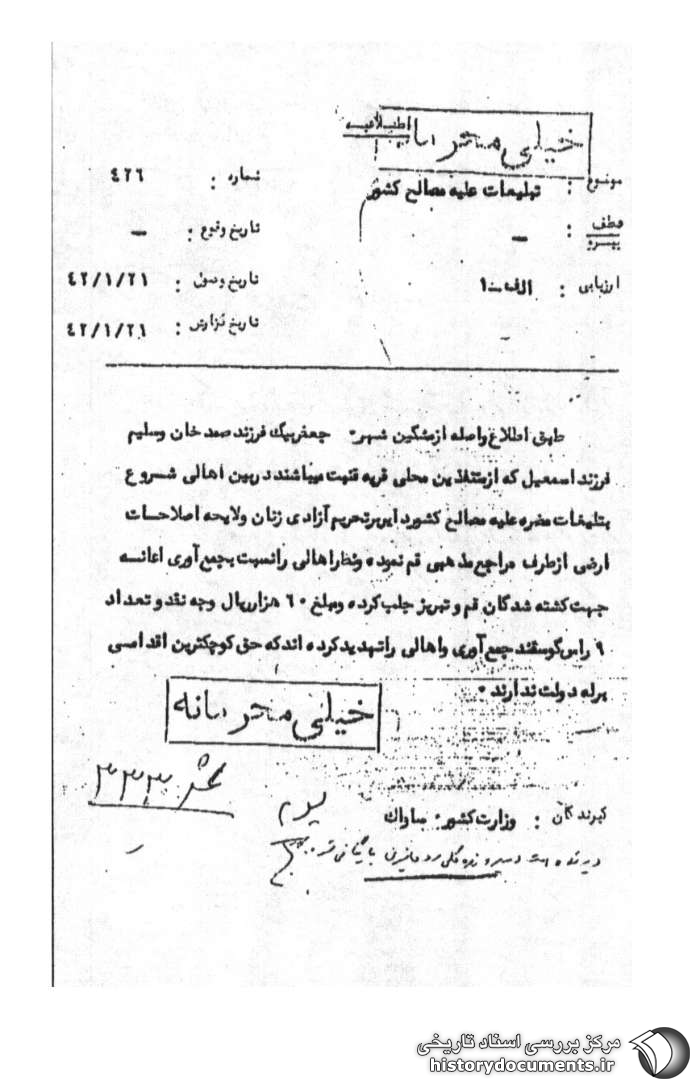 خیلی محرمانه
اطلاعیه
موضوع : تبلیغات علیه مصالح کشور
شماره : ٤٢٦
عطف
پیرو : ــ
تاریخ وقوع : ــ
ارزیابی : الف ــ ١٠
تاریخ وصول : ٤٢/١/٢١
تاریخ گزارش : ٤٢/١/٢١
طبق اطلاع واصله از مشگین شهر جعفربیک فرزند صمد خان وسلیم
فرزند اسمعیل که از متنفذین محلی قریه قنیت میباشند دربین اهالی شروع
بتلیغات مضره علیه مصالح کشور دایر بر تحریم آزادی زنان ولایحه اصلاحات
ارضی ازطرف مراجع مذهبی قم نموده ونظر اهالی را نسبت بجمع آوری اعانه
جهت کشته شدگان قم و تبریز جلب کرده ومبلغ ٦٠ هزارریال وجه نقد و تعداد
٩ راس گوسفند جمع آوری واهالی راتهدید کرده اند که حق کوچکترین اقدامی
برله دولت ندارند ٠
خیلی محرمانه
۳۳۳
گیرندگان : وزارت کشور ٠ ساواک
مرکز بررسی اسناد تاریخی
historydocuments.ir